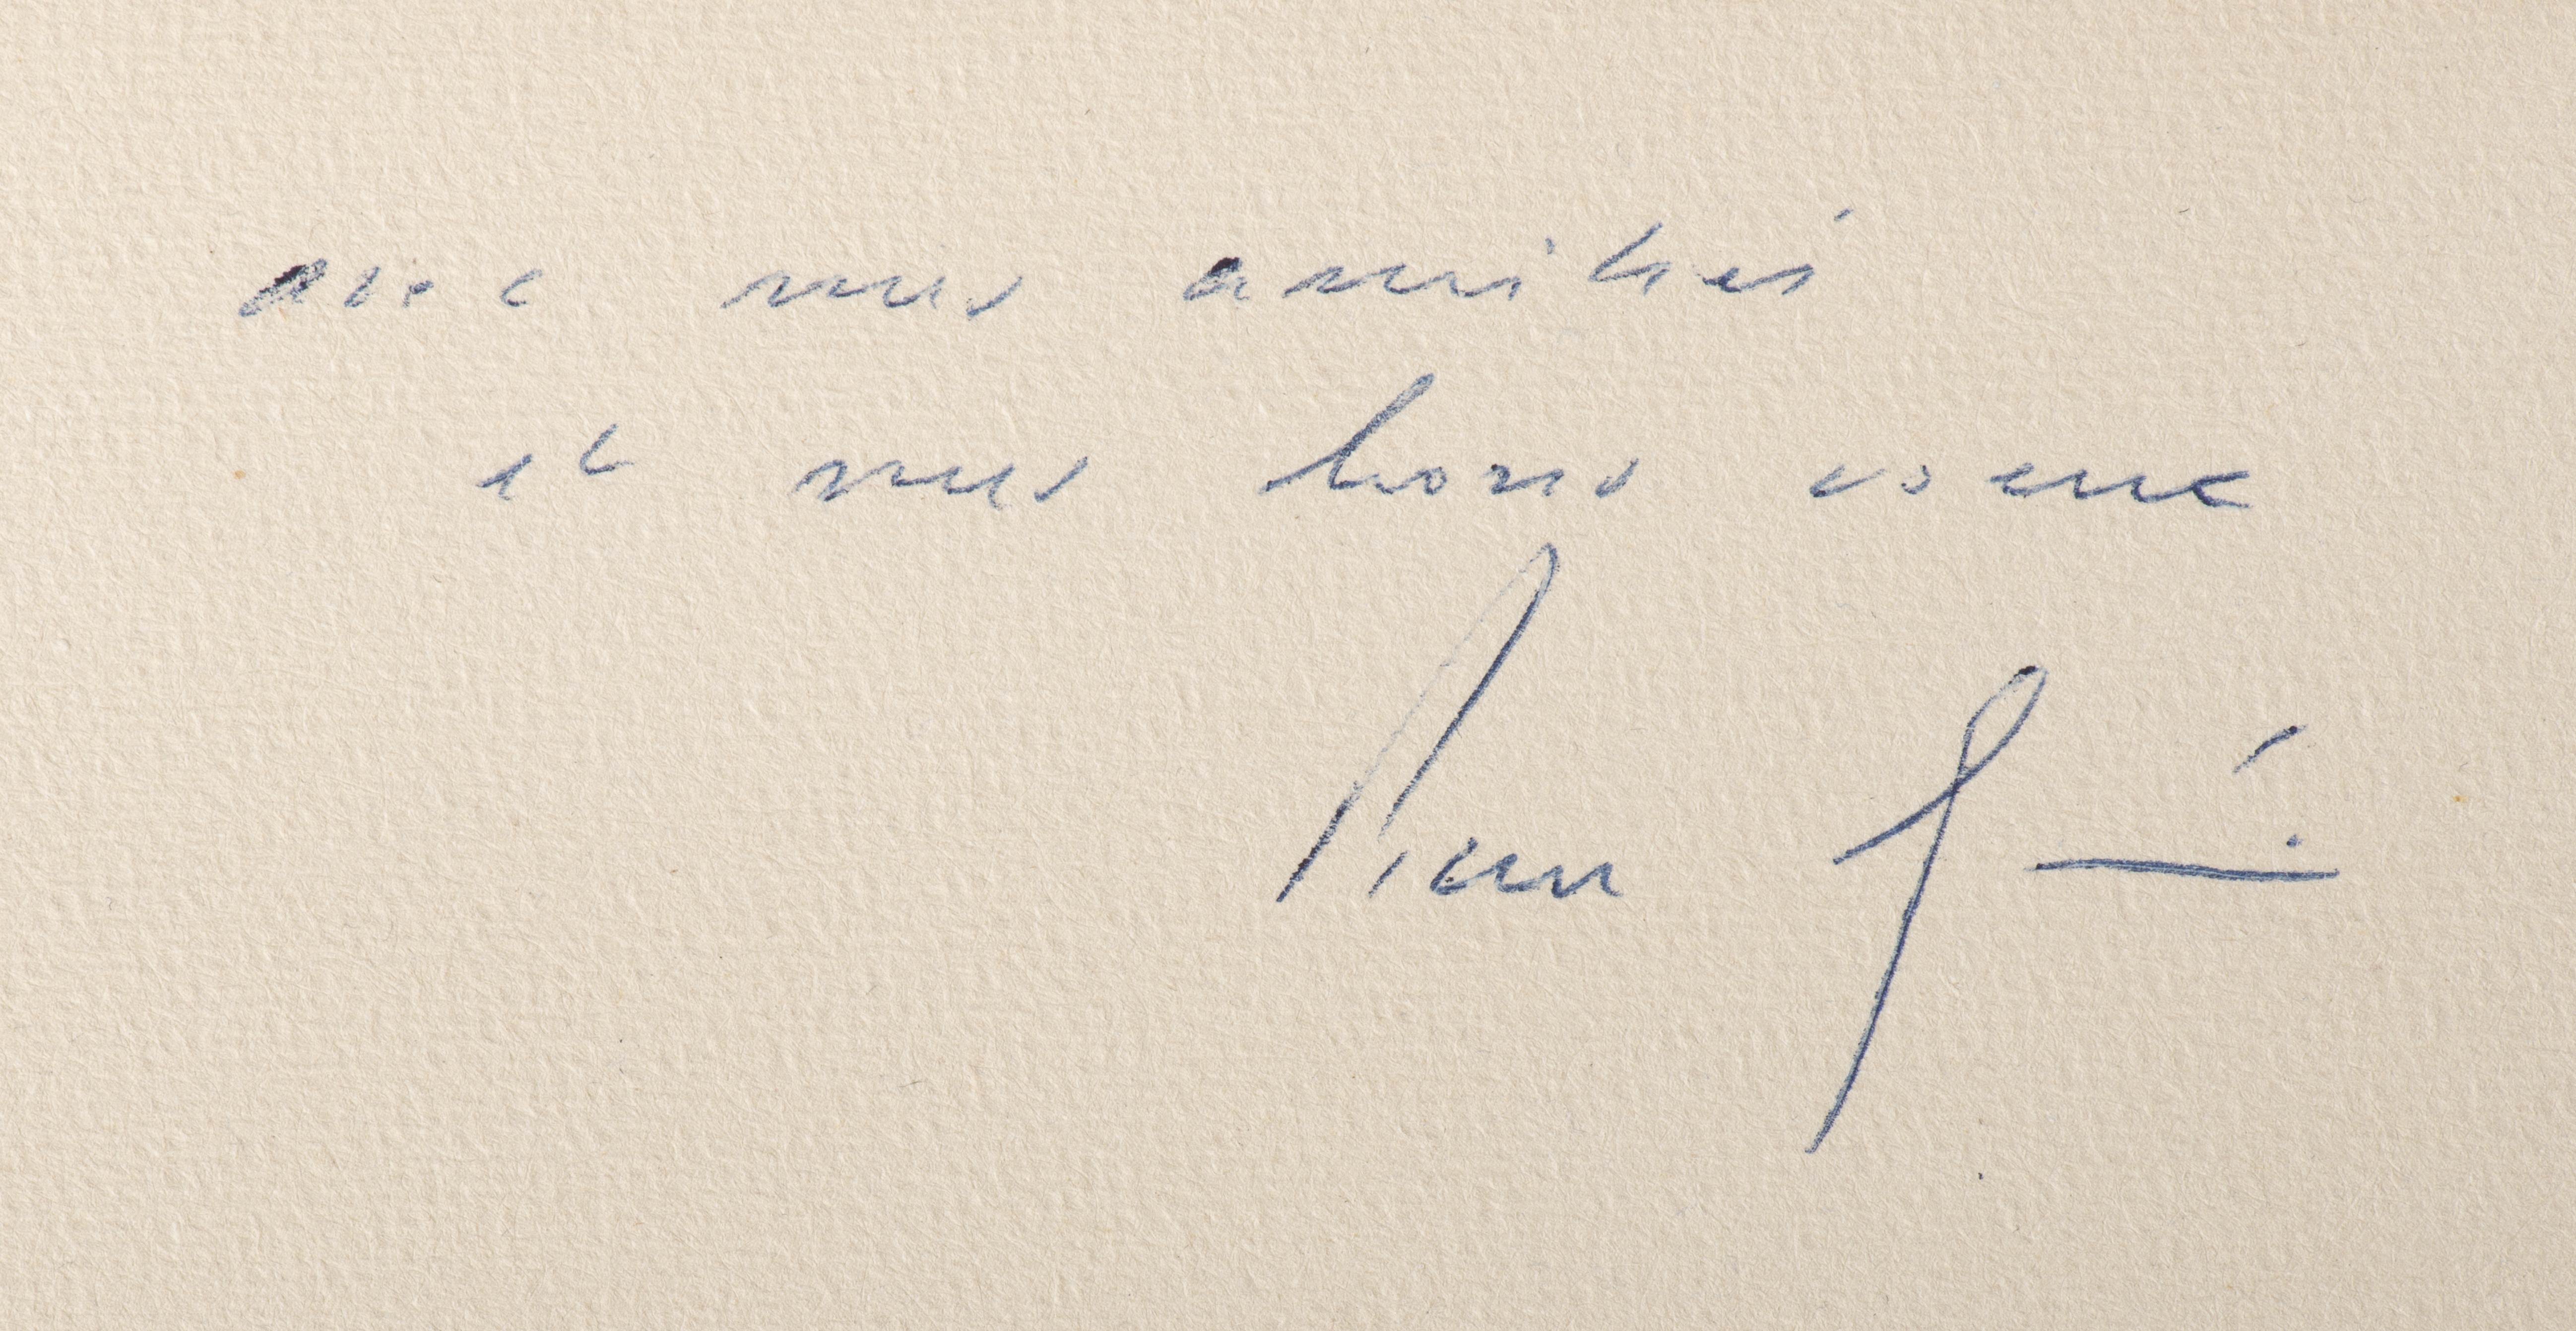 avec mes amitiés
et mes bons voeux
Pierre